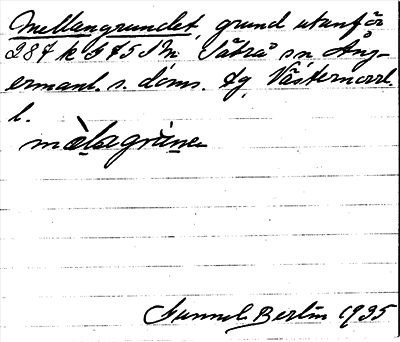 Mellangrundet, grund utanför
287 k G 45 I m. Sätrå sn Ång-
ermanl. s. doms. dg, Västernorrl.
l.
Gunnel Berlin 1935